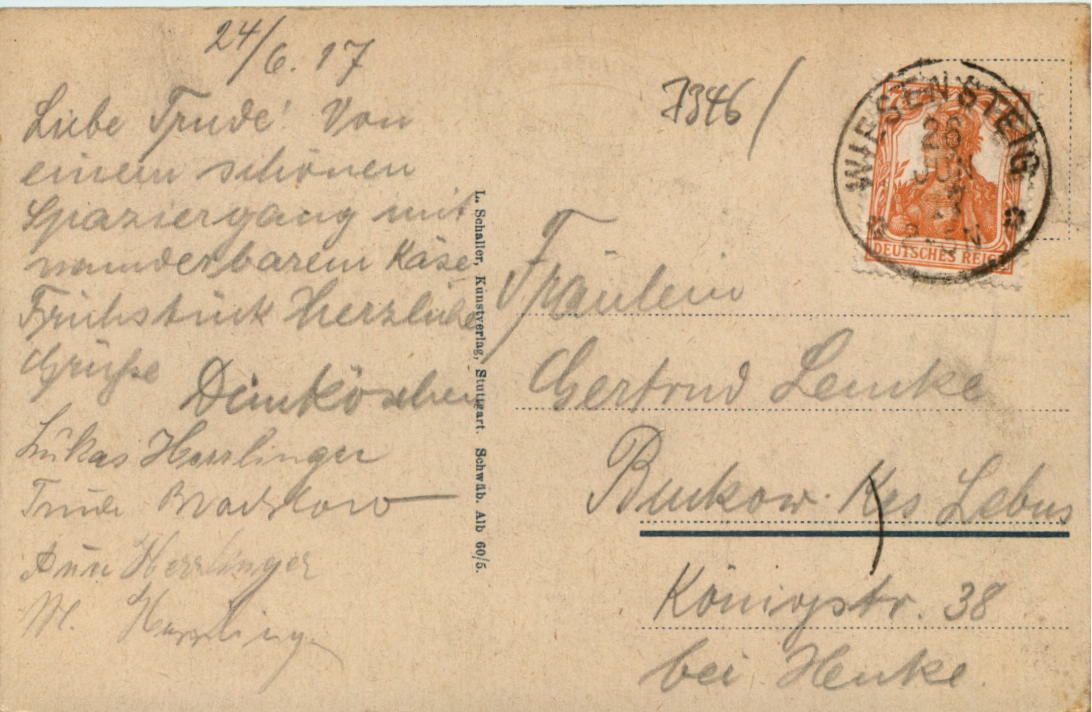 24/6. 17
Liebe Trude! Von
einem schönen
Spaziergang mit
wunderbarem Käse
Frühstück Herzliche
Grüße
Lukas Herrlinger
Trude
Herrlinger
M.
L. Schaller, Kunstverlag, Stuttgart. Schwäb. Alb 60/5.
7346/
WIESENSTEIG
26
JUN
DEUTSCHES REICH
Fräulein
Gertrud Lemke
Buckow. Krs Lebus
Königstr. 38
bei Henke.